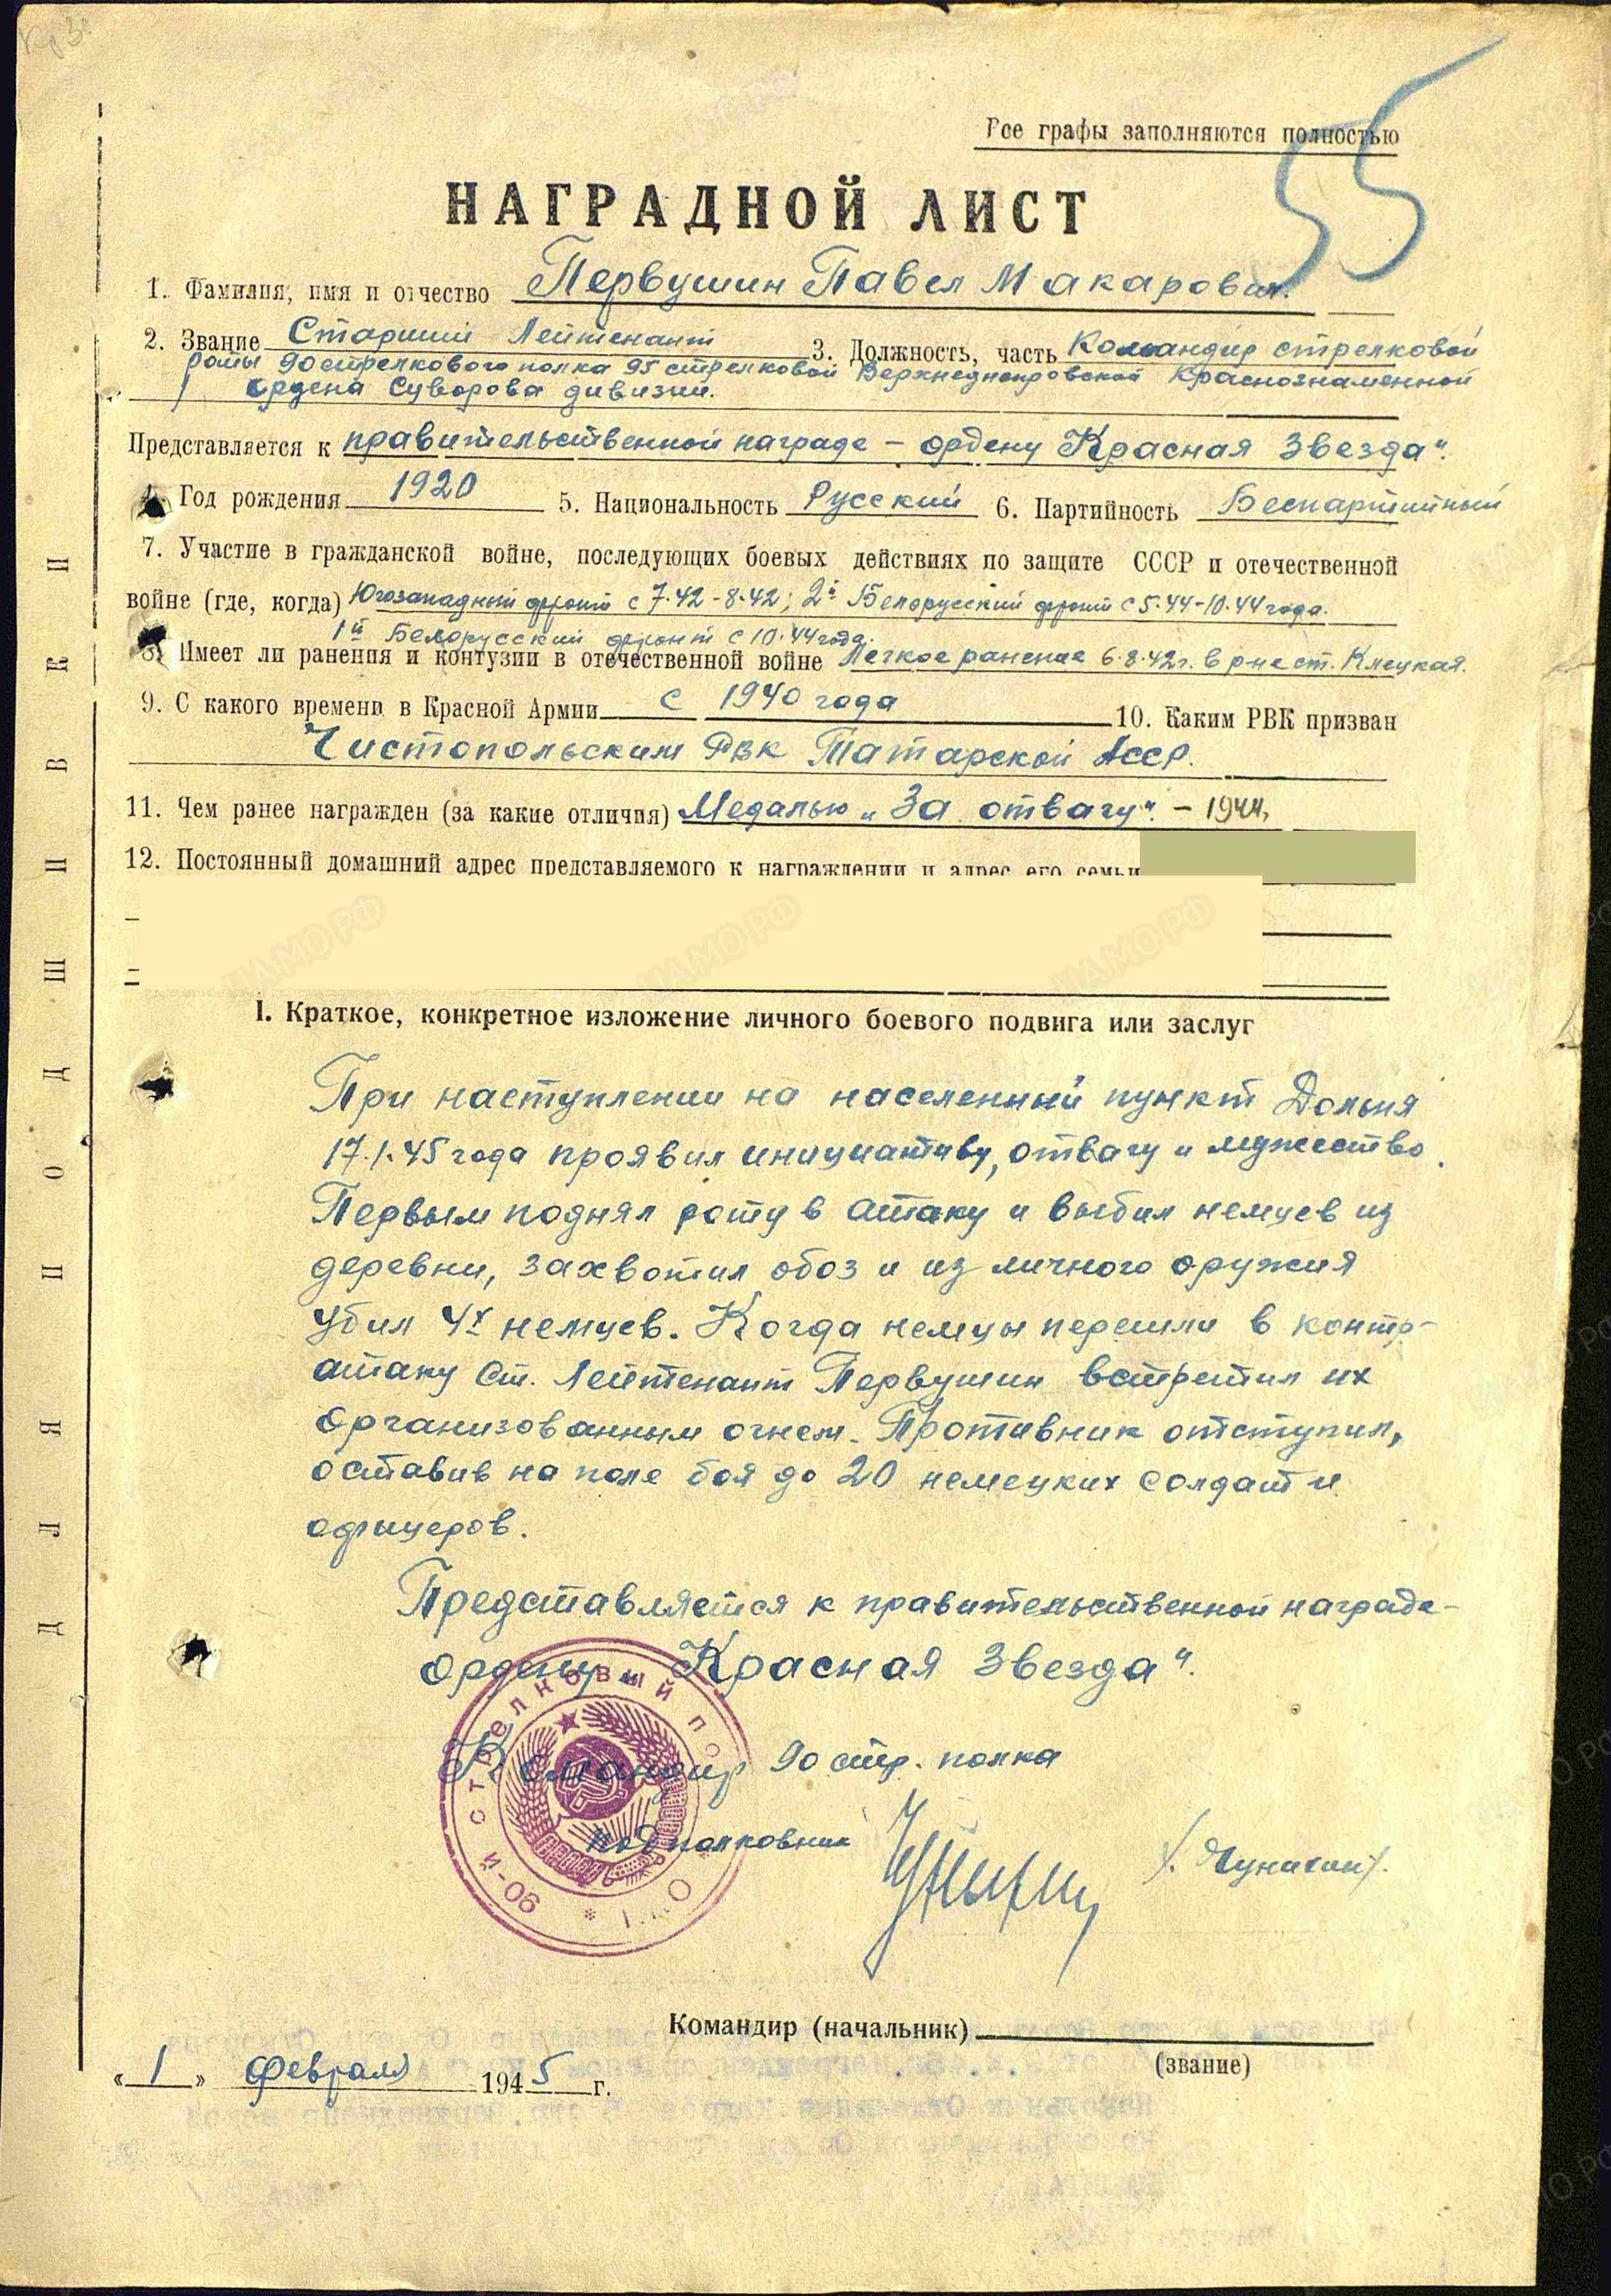 Все графы заполняются полностью
55
НАГРАДНОЙ ЛИСТ
1. Фамилия, имя и отчество Первушин Павел Макарович.
2. Звание Старший Лейтенант 3. Должность, часть Командир стрелковой
роты 90 стрелкового полка 95 стрелковой Верхнеднепровской Краснознаменной
ордена Суворова дивизии.
Представляется к правительственной награде – ордену „Красная Звезда“.
4. Год рождения 1920 5. Национальность Русский 6. Партийность Беспартийный
7. Участие в гражданской войне, последующих боевых действиях по защите СССР и отечественной
войне (где, когда) Югозападный фронт с 7.42-8.42; 2й Белорусский фронт с 5.44-10.44 года.
1й Белорусский фронт с 10.44 года.
8. Имеет ли ранения и контузии в отечественной войне Легкое ранение 6.8.42г. в р-не ст. Клецкая.
9. С какого времени в Красной Армии с 1940 года 10. Каким РВК призван
Чистопольским РВК Татарской АССР.
11. Чем ранее награжден (за какие отличия) Медалью „За отвагу“. – 1944,
12. Постоянный домашний адрес представляемого к награждению и адрес его семьи
I. Краткое, конкретное изложение личного боевого подвига или заслуг
При наступлении на населенный пункт Дольня
17.1.45 года проявил инициативу, отвагу и мужество.
Первым поднял роту в атаку и выбил немцев из
деревни, захватил обоз и из личного оружия
убил 4х немцев. Когда немцы перешли в контр-
атаку Ст. Лейтенант Первушин встретил их
организованным огнем. Противник отступил,
оставив на поле боя до 20 немецких солдат и
офицеров.
Представляется к правительственной награде-
ордену „Красная Звезда“.
Командир 90 стр. полка
подполковник
90-й стрелковый
Командир (начальник)
(звание)
«1» февраля 1945 г.
ДЛЯ ПОДШИВКИ
ЦАМО РФ